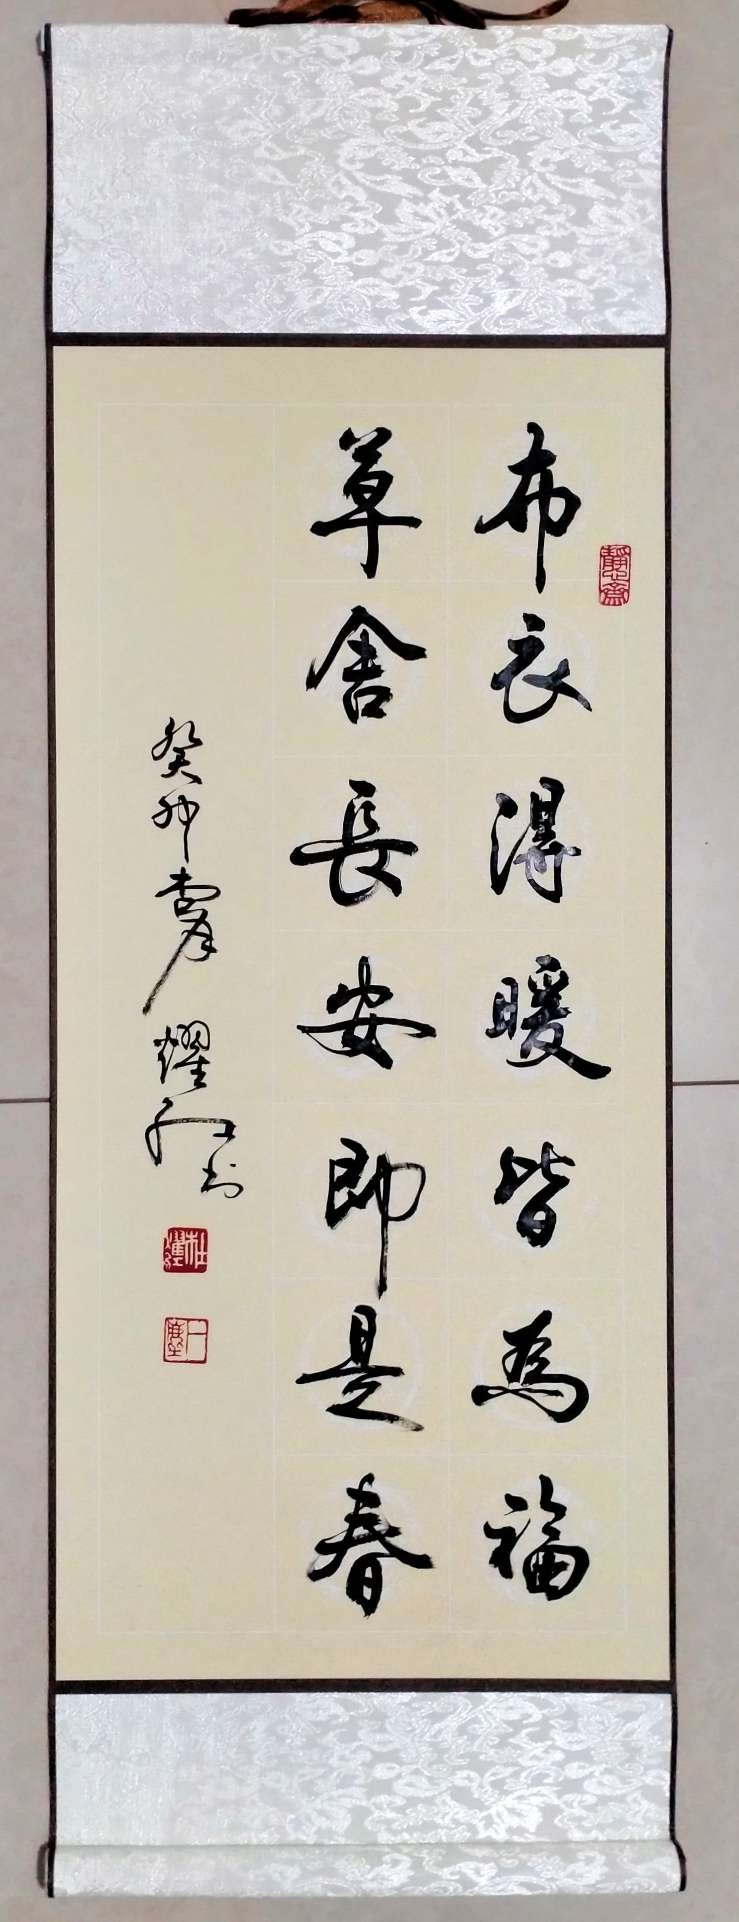 布衣得暖皆為福
草舍長安即是春
癸卯 耀 书
靜心齋